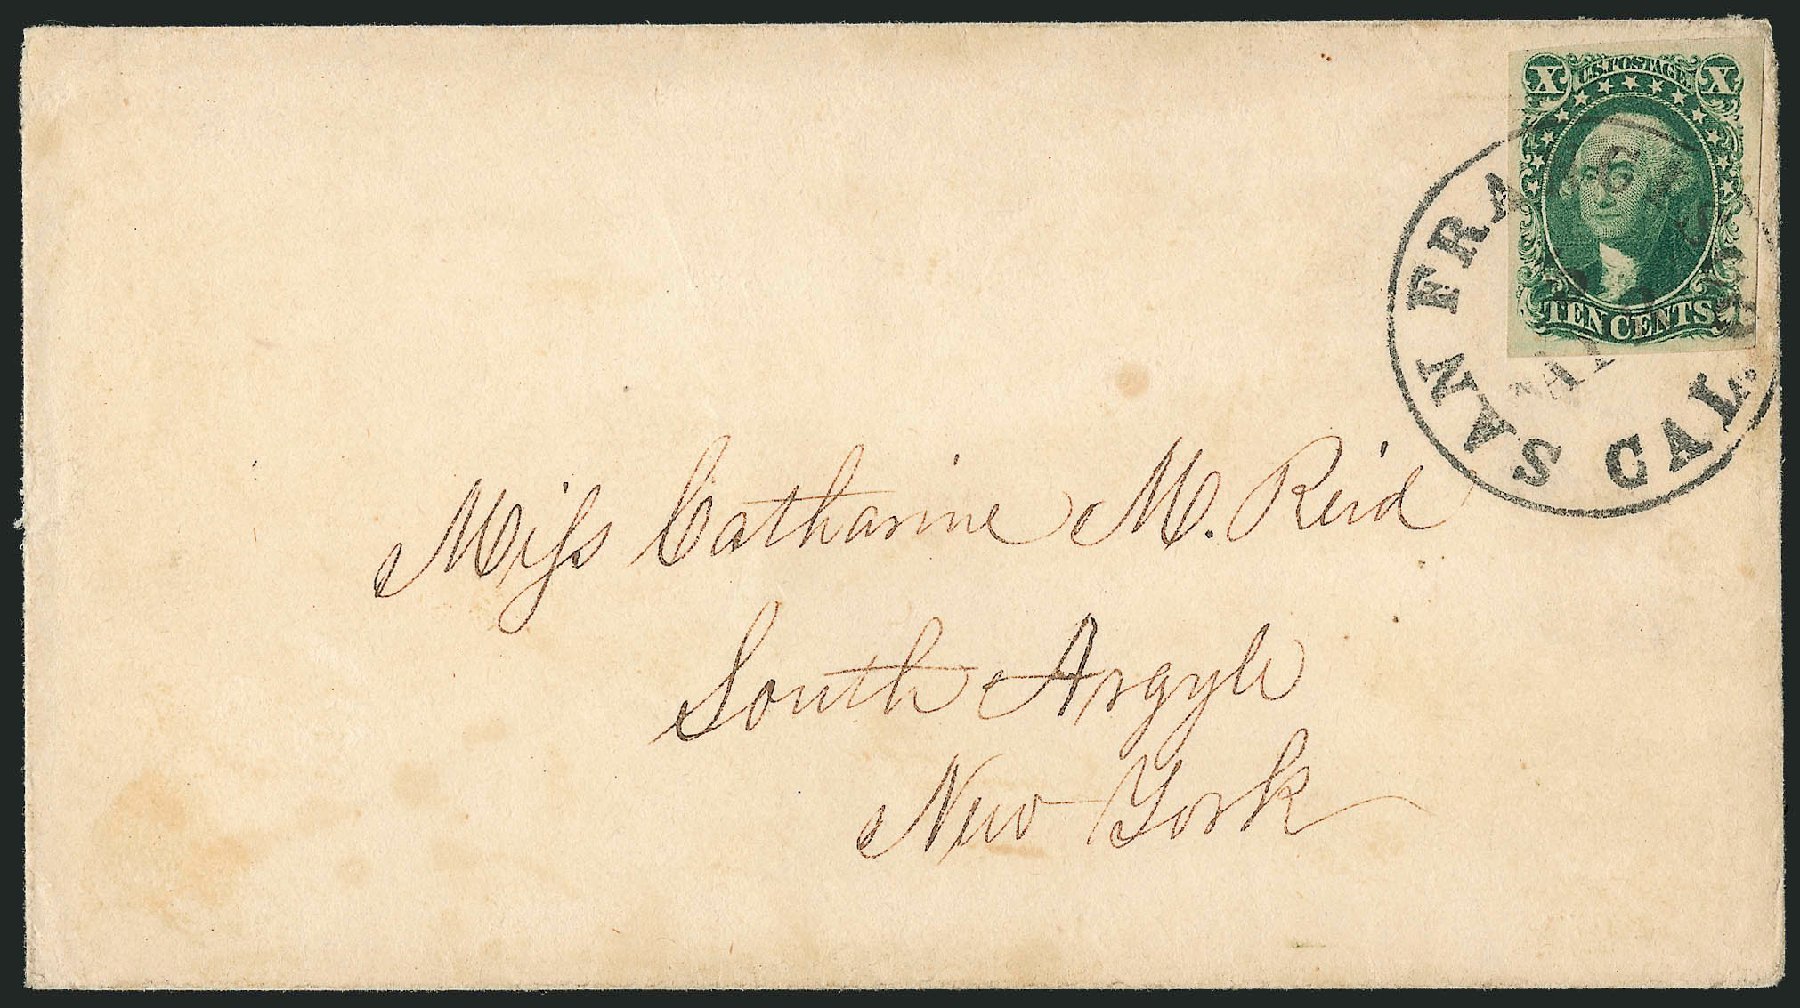 X U.S. POSTAGE X
TEN CENTS
SAN FRANCISCO CAL.
Miſs Catharine M. Reid
South Argyle
New York